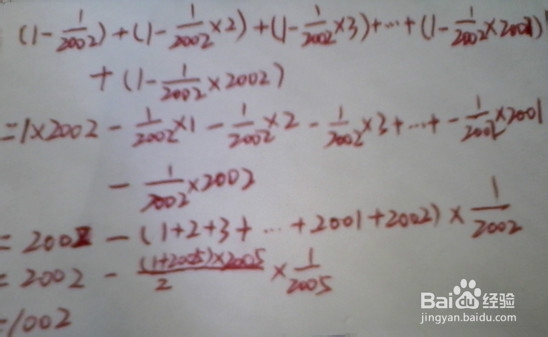 (1-1/2002)+(1-1/2002×2)+(1-1/2002×3)+…+(1-1/2002×2001)
+(1-1/2002×2002)
=1×2002-1/2002×1-1/2002×2-1/2002×3+…+-1/2002×2001
-1/2002×2002
=2002-(1+2+3+…+2001+2002)×1/2002
=2002-(1+2005)×2005/2×1/2005
=1002
Baidu经验
jingyan.baidu.com